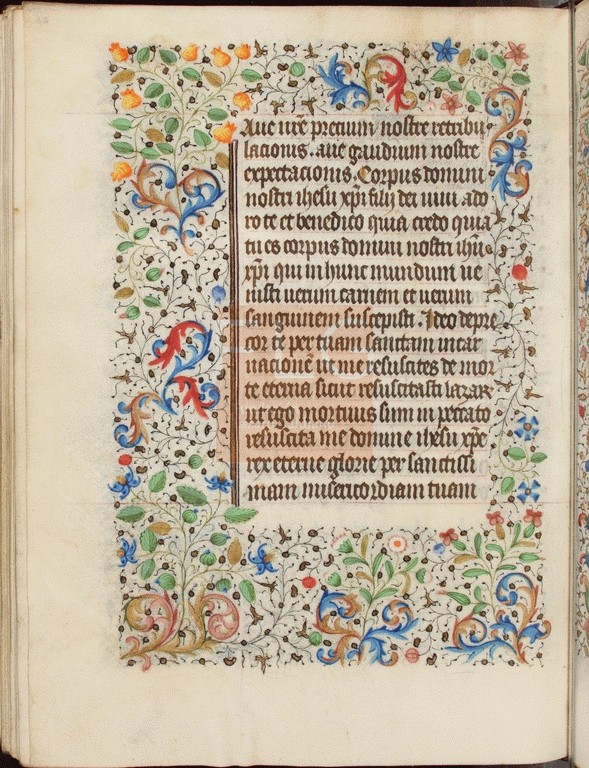 Aue n̄r̄e precium nostre retribu
lacionis. aue gaudium nostre
expectacionis. Corpus domini
nostri ihesu xp̄i filij dei uiui ado
ro te et benedico quia credo quia
tu es corpus domini nostri ihū
xp̄i qui in hunc mundum ue
nisti uerum carnem et uerum
sanguinem suscepisti. Ideo depre
cor te per tuam sanctam incar
nacionē ut me resuscites de mor
te eterna sicut resuscitasti lazarꝫ
ut ego mortuus sum in peccato
resuscita me domine ihesu xp̄e
rex eterne glorie per sanctissi
mam misericordiam tuam